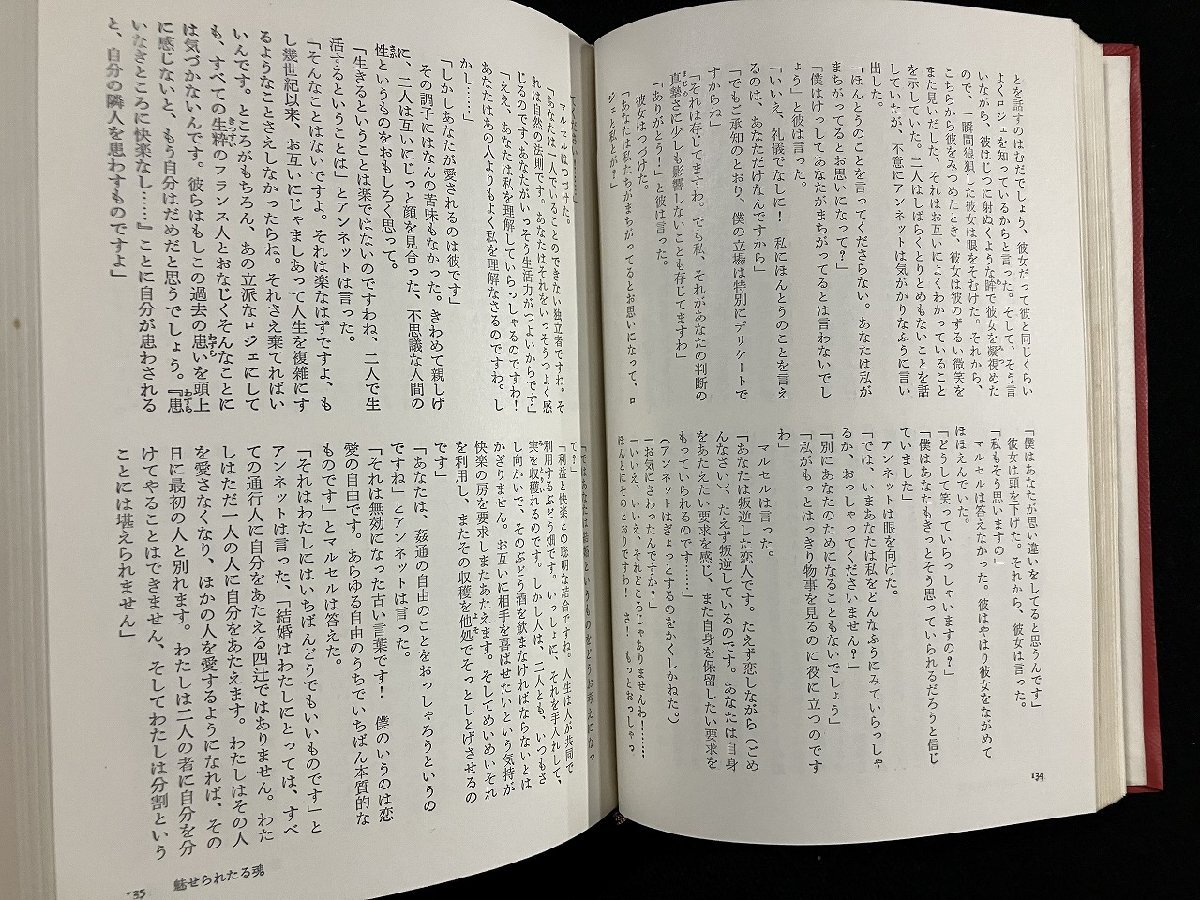 とを話すのはむだでしょう、彼女だって彼と同じくらい
よくロジェを知っているからと言った。そして、そう言
いながら、彼はじっに射ぬくような眸で彼女を凝視めた
ので、一瞬間狼狽した彼女は眼をそむけた。それから、
こちらから彼をみつめたとき、彼女は彼のずるい微笑を
また見いだした、それはお互いによくわかっていること
を示していた。二人はしばらくとりとめもないことを話
していたが、不意にアンネットは気がかりなふうに言い
出した。
「ほんとうのことを言ってくださらない。あなたは私が
まちがってるとお思いになって?」
「僕はけっしてあなたがまちがってるとは言わないでし
ょう」と彼は言った。
「いいえ、礼儀でなしに! 私にほんとうのことを言え
るのは、あなただけなんですから」
「でもご承知のとおり、僕の立場は特別にデリケートで
すからね」
「それは存じてますわ。でも私、それがあなたの判断の
直摯さに少しも影響しないことも存じてますわ」
「ありがとう!」と彼は言った。
彼女はつづけた。
「あなたは私たちがまちがってるとお思いになって、ロ
ジェと私とが?」
「僕はあなたが思い違いをしてると思うんです」
彼女は頭を下げた。それから、彼女は言った。
「私もそう思いますの」
マルセルは答えなかった。彼はやはり彼女をながめて
ほほえんでいた。
「どうして笑っていらっしゃいますの?」
「僕はあなたもきっとそう思っていられるだろうと信じ
ていました」
アンネットは眼を向けた。
「では、いまあなたは私をどんなふうにみていらっしゃ
るか、おっしゃってくださいません?」
「別にあなたのためになることともないでしょう」
「私がもっとはっきり物事を見るのに役に立つのです
わ」
マルセルは言った。
「あなたは叛逆した恋人です。たえず恋しながら(ごめ
んなさい)、たえず叛逆しているのです。あなたは自身
をあたえたい要求を感じ、また自身を保留したい要求を
もっていられるのです……」
(アンネットはぎょっとするのをかくしかねた。)
「お気にさわったんですか?」
「いいえ、いいえ、それどころじゃありませんわ!……
ほんとにそのとおりですわ! さ! もっとおっしゃっ
134
マルセルはつづけた。
「あなたは一人でいることのできない独立者ですわ。そ
れは自然の法則です。あなたはそれをいっそうつよく感
じるのです、あなたがいっそう生活力がつよいからです」
「ええ、あなたは私を理解していらっしゃるのですわ!
あなたはあの人よりもよく私を理解なさるのですわ。し
かし……」
「しかしあなたが愛されるのは彼です」
その調子にはなんの苦味もなかった。きわめて親しげ
に、二人は互いにじっと顔を見合った、不思議な人間の
性というものをおもしろく思って。
「生きるということは楽ではないのですわね、二人で生
活するということは」とアンネットは言った。
「そんなことはないですよ。それは楽なはずですよ、も
し幾世紀以来、お互いにじゃましあって人生を複雑にす
るようなことさえしなかったらね。それさえ棄てればい
いんです。ところがもちろん、あの立派なロジェにして
も、すべての生粋のフランス人とおなじくそんなことに
は気づかないんです。彼らはもしこの過去の思いを頭上
に感じないと、もう自分はだめだと思うでしょう。『患
いなきところに快楽なし……』ことに自分が患わされる
と、自分の隣人を患わすものですよ」
て」
「利益と快楽との聡明な結合ですね。人生は人が共同で
利用するぶどう畑です。いっしょに、それを手入れして、
実を収穫れるのです。しかし人は、二人とも、いつもさ
し向かいで、そのぶどう酒を飲まなければならないとは
かぎりません。お互いに相手を喜ばせたいという気持が
快楽の房を要求しまたあたえます。そしてめいめいそれ
を利用し、またその収穫を他処でそっととげさせるの
です」
「あなたは、姦通の自由のことをおっしゃろうというの
ですね」とアンネットは言った。
「それは無効になった古い言葉です! 僕のいうのは恋
愛の自由です。あらゆる自由のうちでいちばん本質的な
ものです」とマルセルは答えた。
「それはわたしにはいちばんどうでもいいものです」と
アンネットは言った、「結婚はわたしにとっては、すべ
ての通行人に自分をあたえる四辻ではありません。わた
しはただ一人の人に自分をあたえます。わたしはその人
を愛さなくなり、ほかの人を愛するようになれば、その
日に最初の人と別れます。わたしは二人の者に自分を分
けてやることはできません、そしてわたしは分割という
ことには堪えられません」
135 魅せられたる魂